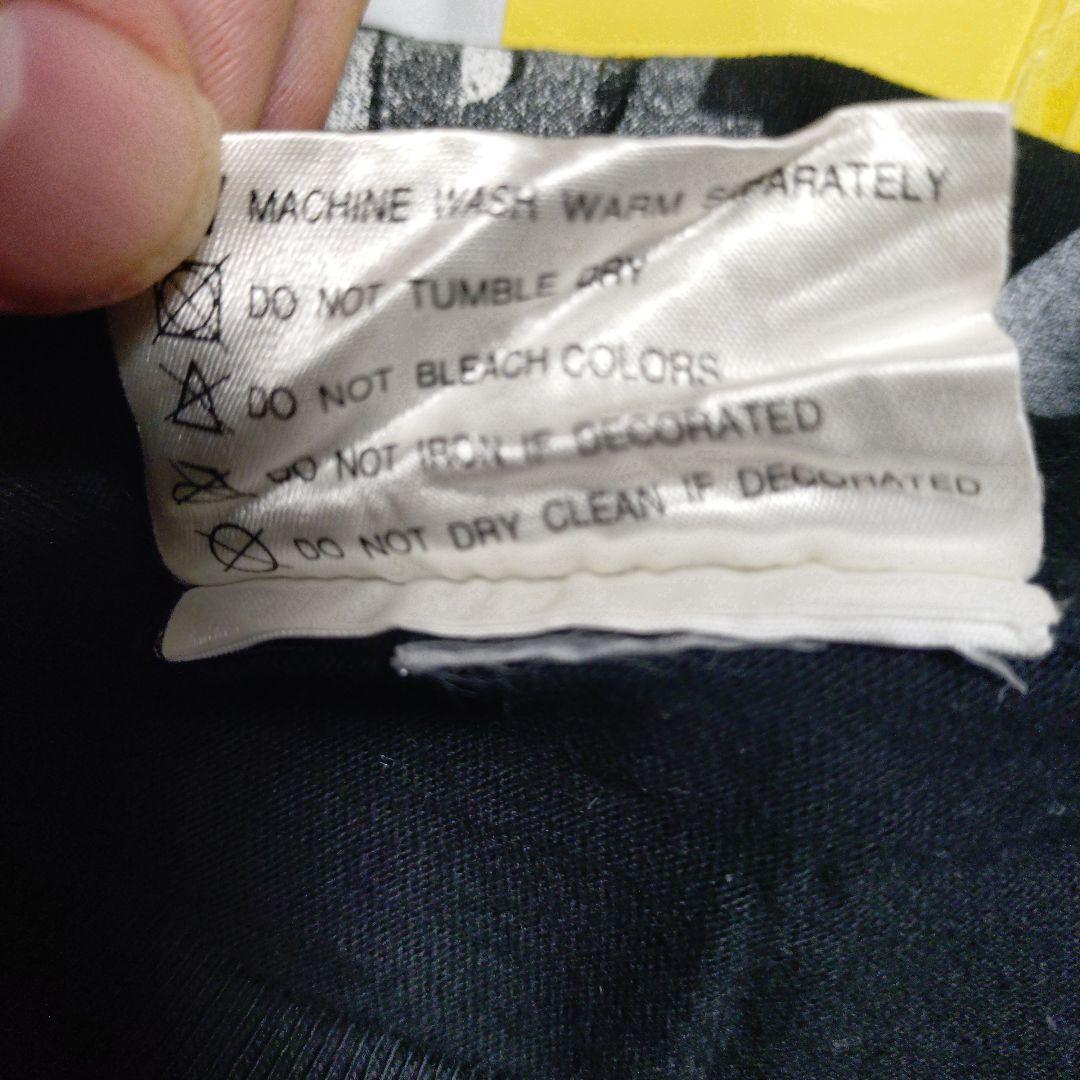 MACHINE WASH WARM SEPARATELY
DO NOT TUMBLE DRY
DO NOT BLEACH COLORS
DO NOT IRON IF DECORATED
DO NOT DRY CLEAN IF DECORATED